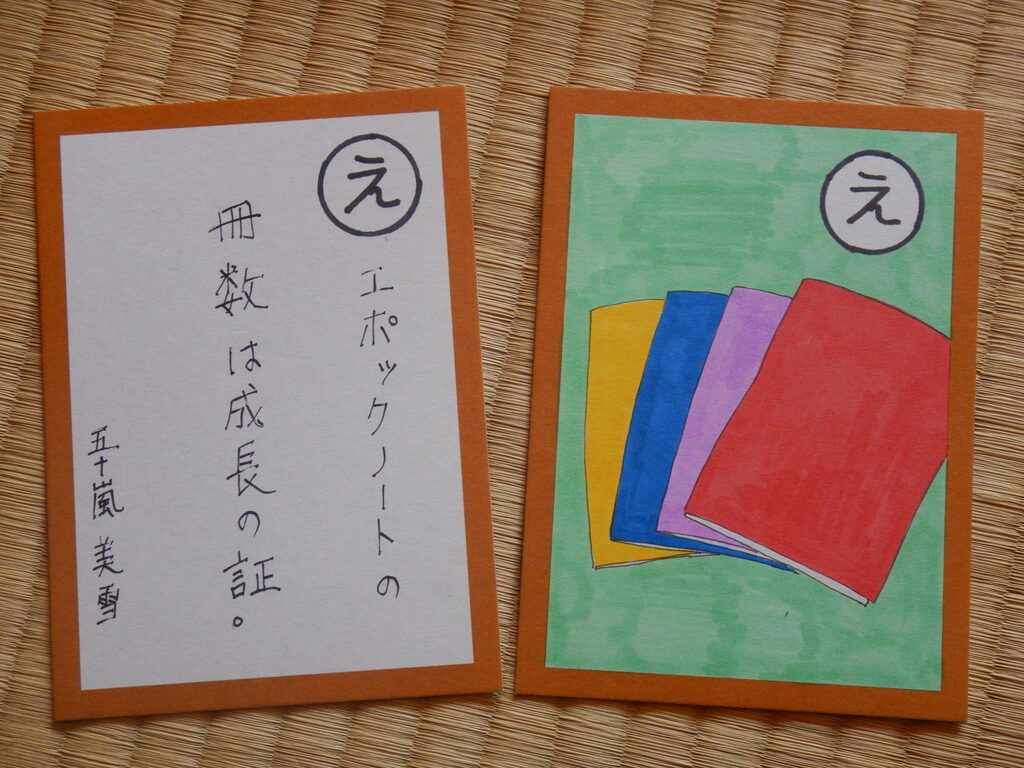 え
エポックノートの
冊数は成長の証。
五十嵐美雪
え